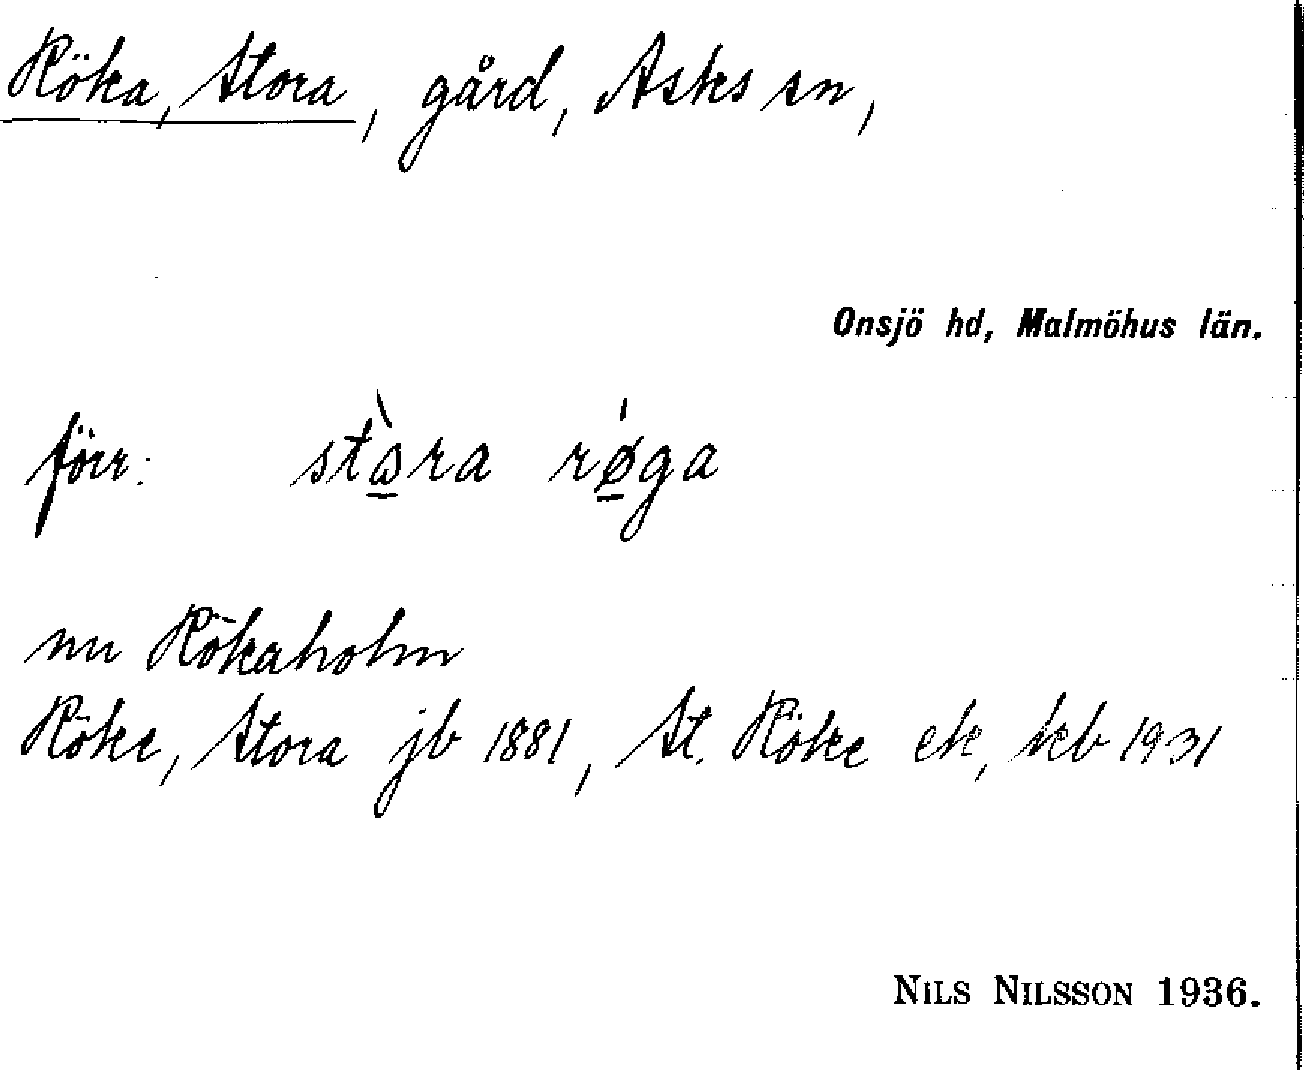 Röka, Stora, gård, Asks sn,
Onsjö hd, Malmöhus län.
förr: stɷ̠̀ra rǿ̠ga
nu Rökaholm
Röke, Stora jb 1881, St. Röke ek, kb 1931
NILS NILSSON 1936.